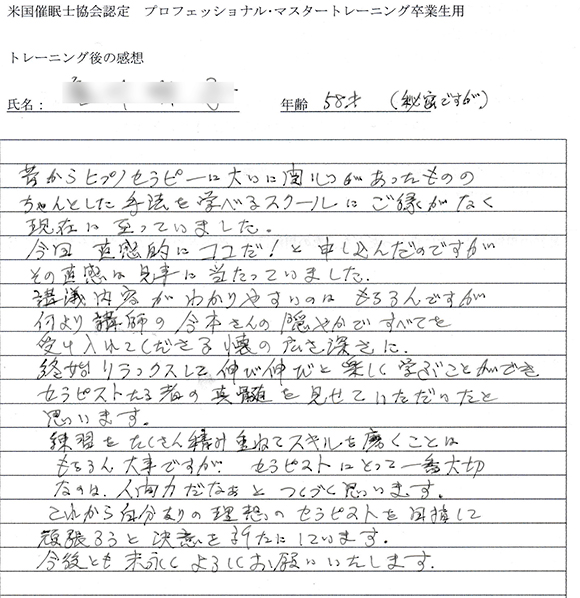 米国催眠士協会認定　プロフェッショナル・マスタートレーニング卒業生用
トレーニング後の感想
氏名：
年齢 58才 （秘密ですが）
昔からヒプノセラピーに大いに関心があったものの
ちゃんとした手法を学べるスクールにご縁がなく
現在に至っていました。
今回 直感的にココだ！と申し込んだのですが
その直感は見事に当たっていました。
講議内容がわかりやすいのはもちろんですが
何より講師の今本さんの隠やかですべてを
受け入れてくださる懐の広さ深さに、
終始リラックスして伸び伸びと楽しく学ぶことができ
セラピストたる者の真髄を見せていただいたと
思います。
練習をたくさん積み重ねてスキルを磨くことは
もちろん大事ですが、セラピストにとって一番大切
なのは、人間力だなぁとつくづく思います。
これから自分なりの理想のセラピストを目指して
頑張ろうと決意を新たにしています。
今後とも末永くよろしくお願いいたします。